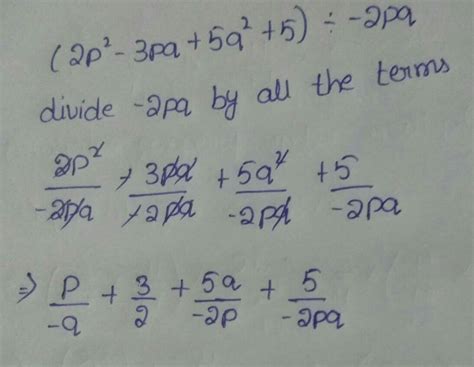 (2p² - 3pa + 5a² + 5) ÷ -2pa
divide -2pa by all the terms
2p²/-2pa - 3pa/-2pa + 5a²/-2pa + 5/-2pa
⇒ p/-a + 3/2 + 5a/-2p + 5/-2pa